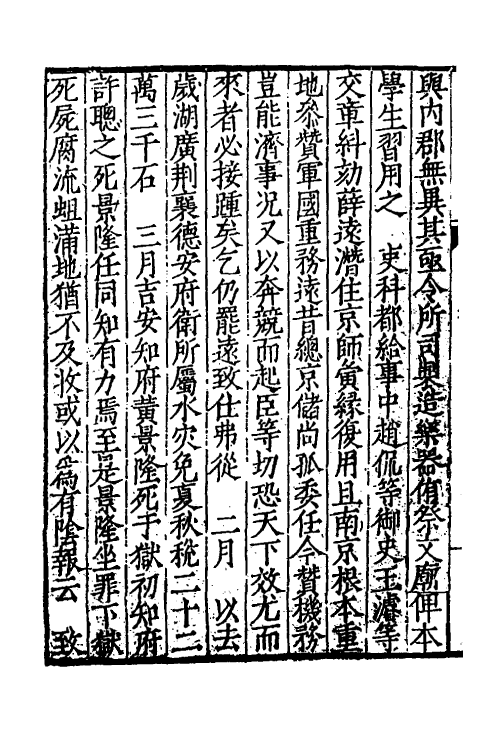 與内郡無異其亟令所司製造樂器俻祭文廟俾本
學生習用之　吏科都給事中趙侃等御史王濬等
交章糾劾薛遠潛住京師夤縁復用且南京根本重
地叅贊軍國重務遠昔總京儲尚孤委任今贊機務
豈能濟事况又以奔競而起臣等切恐天下效尤而
來者必接踵矣乞仍罷遠致仕弗從　二月　以去
歲湖廣荆襄德安府衛所屬水灾免夏秋稅二十二
萬三千石　三月吉安知府黄景隆死于獄初知府
許聰之死景隆任同知有力焉至是景隆坐罪下獄
死屍腐流蛆滿地猶不及收或以爲有陰報云　致